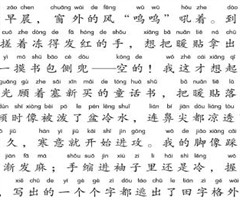 zǎo chén chuāng wài de fēng wū wū hǒu zhe dào
早晨，窗外的风“呜呜”吼着。到
cuō zhe dòng de fā hóng de shǒu xiǎng bǎ nuǎn tiē ná chū
搓着冻得发红的手，想把暖贴拿出
mō shū bāo cè dōu kōng de wǒ zhè cái xiǎng
一摸书包侧兜——空的！我这才想起
guāng gù zhe sāi xīn mǎi de tóng huà shū bǎ nuǎn tiē là
光顾着塞新买的童话书，把暖贴落
dùn shí xiàng bèi pō le pén lěng shuǐ lián bí jiān dōu liáng tòu
顿时像被泼了盆冷水，连鼻尖都凉透
jiǔ hán yì jiù kāi shǐ jìn gōng wǒ de jiǎo xiàng cǎi
久，寒意就开始进攻。我的脚像踩
jiàn fā má shǒu suō jìn xiù zi lǐ hái shì lěng wò
渐发麻；手缩进袖子里还是冷，握
xiě chū de yí gè gè zì dōu táo chū le tián zì gé wài
，写出的一个个字都逃出了田字格外